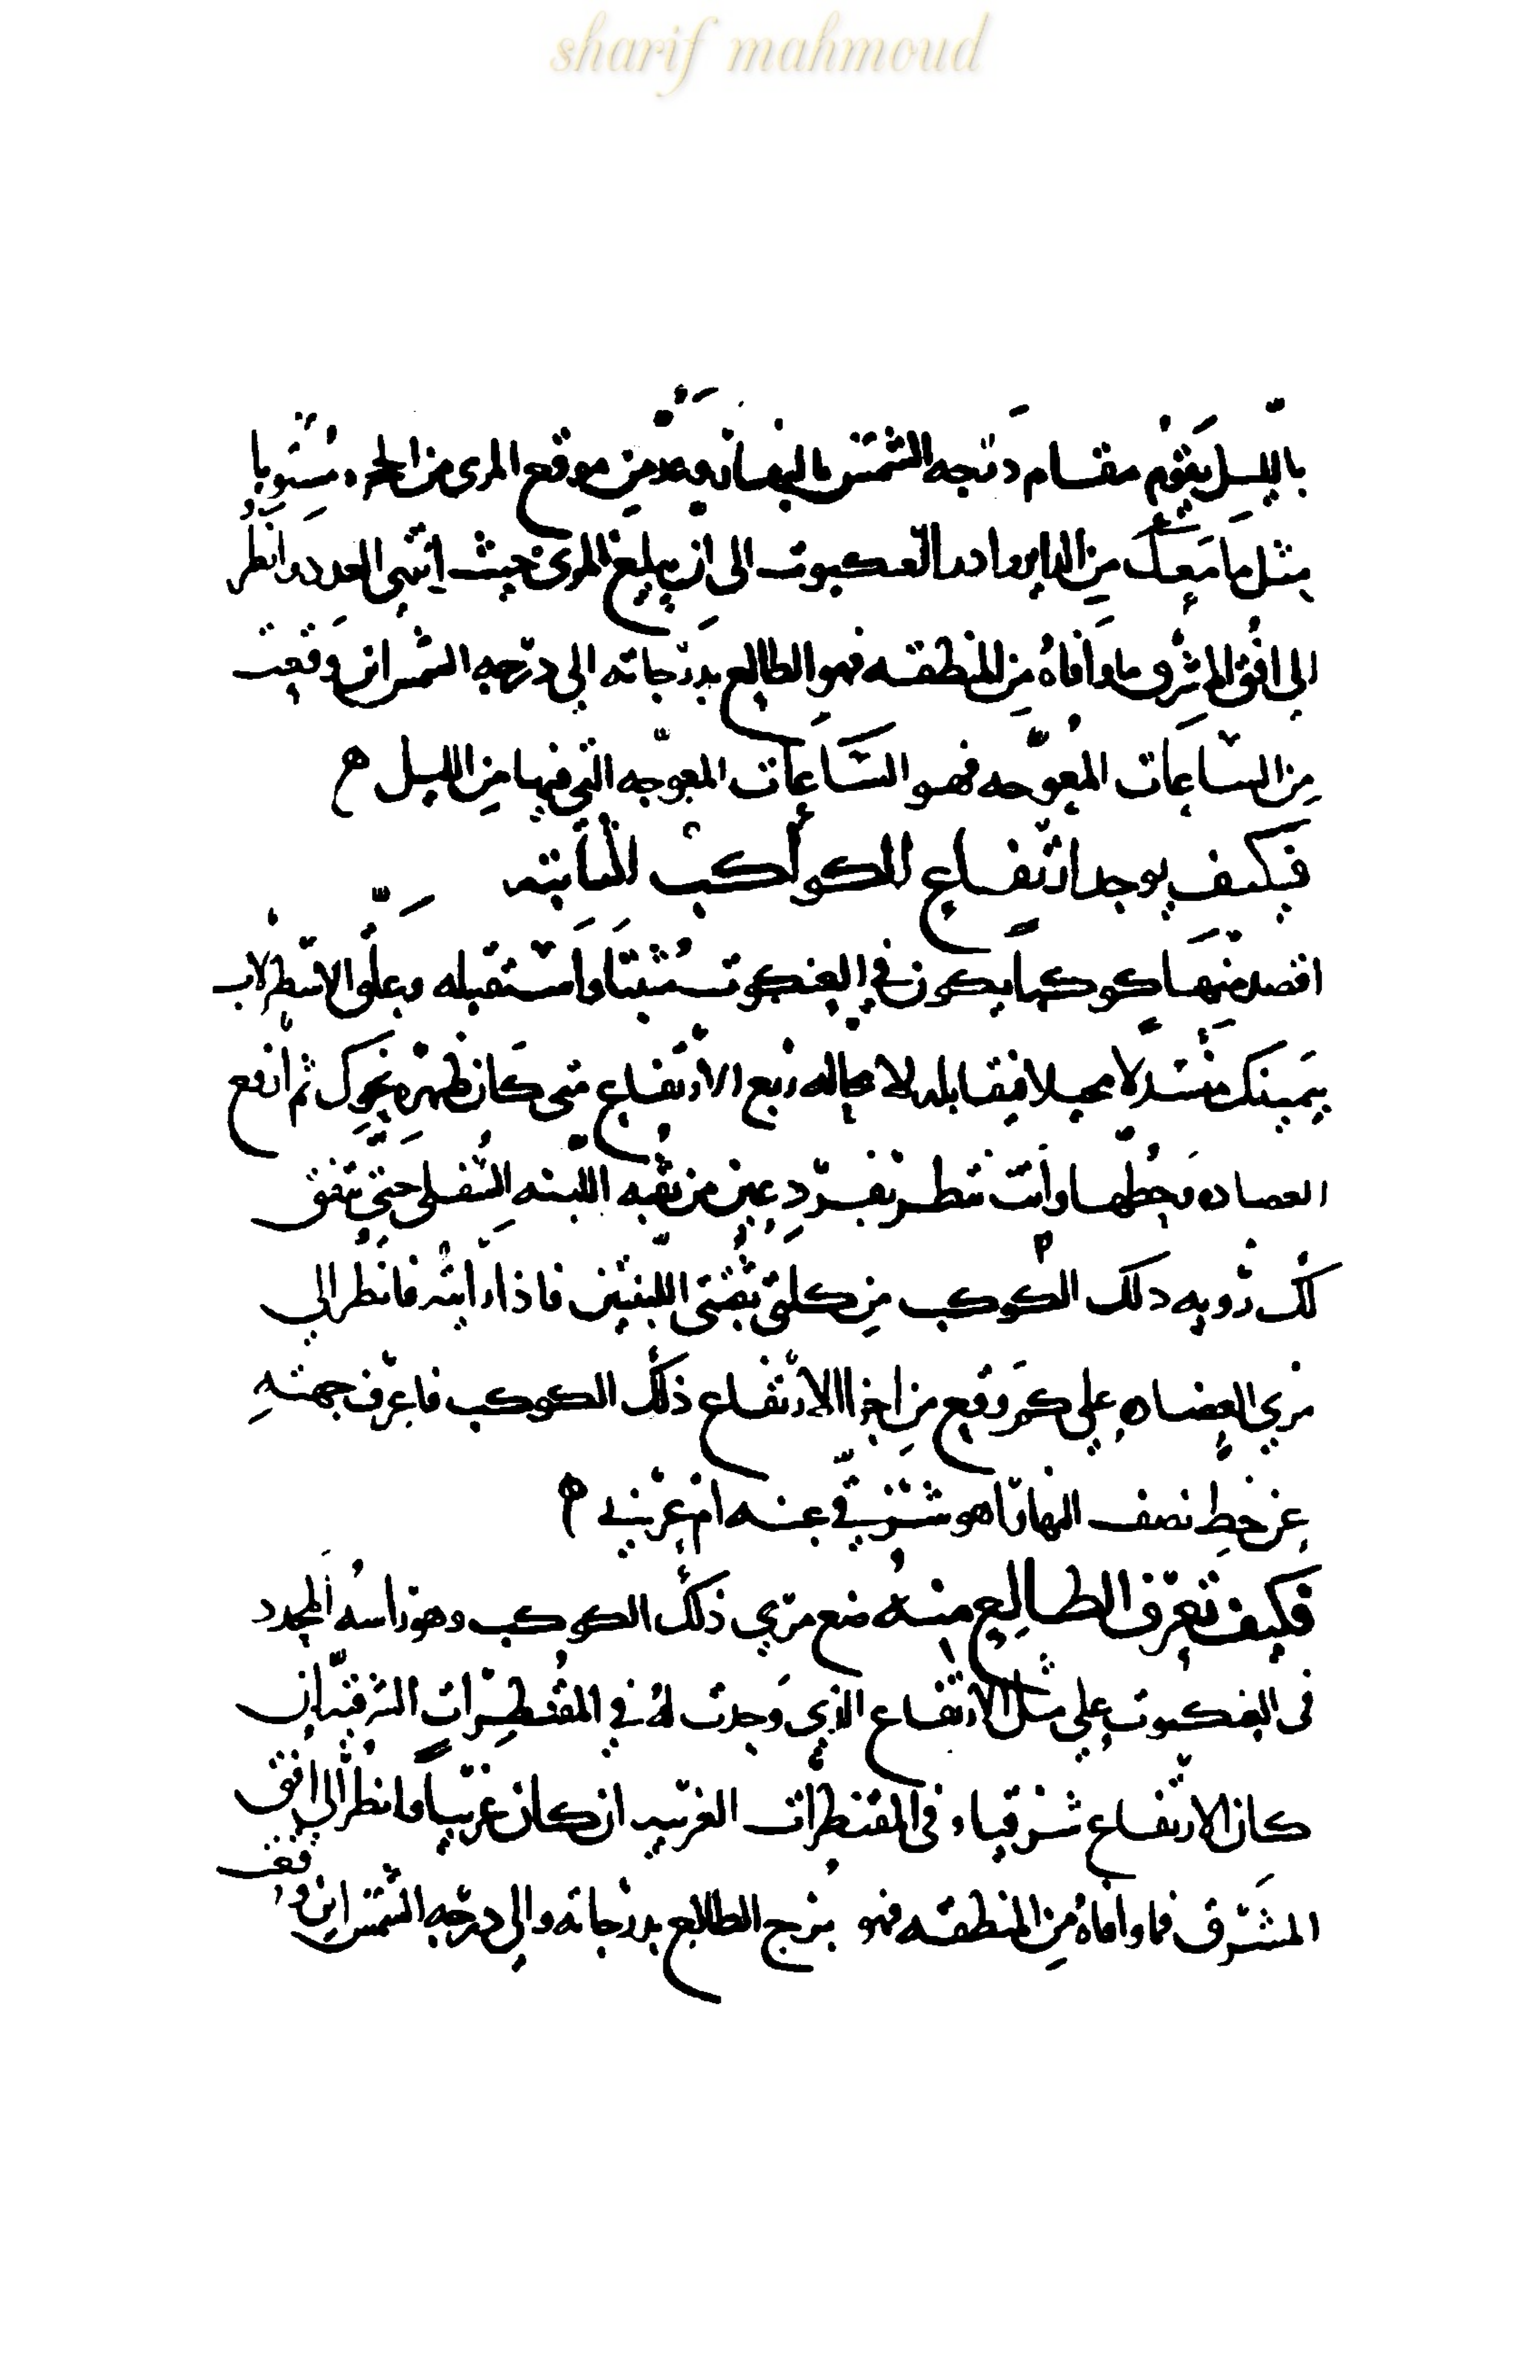 sharif mahmoud
بالليل يقوم مقام درجه الشمس بالنهار وعد من موقع المرى من الحجره مستويا
مثل ما معك من الداير وادر العنكبوت الى ان يبلغ المرى حيث انتهى العدد وانظر
الى افق المشرق ما وافاه من المنطقه فهو الطالع بدرجاته الي درجه الشمس اين وقعت
من الساعات المعوجه فهو الساعات المعوجه التي فيها من الليل ه
فكيف يوجد ارتفاع الكواكب الثابته
اقصد منها كوكبا يكون في العنكبوت مثبتا واستقبله وعلق الاسطرلاب
بيمينك منسدلا فيقابله لا محاله ربع الارتفاع متى كان ظهره نحوك ثم ارفع
العضاده وحطها وانت تنظر بفرد عين من ثقبه اللبنه السفلى حتى يتفق
لك رويه ذلك الكوكب من كلتى ثقبتى اللبنتين فاذا رايته فانظر الي
مري العضاده علي كم وقع من اجزا الارتفاع ذلك الكوكب فاعرف جهته
عن خط نصف النهار اهو شرقي عنه ام غربي ه
فكيف تعرف الطالع منه ضع مري ذلك الكوكب وهو راسه المحدد
فى العنكبوت علي مثل الارتفاع الذي وجدت له في المقنطرات الشرقيه ان
كان الارتفاع شرقيا وفى المقنطرات الغربيه ان كان غربيا وانظر الي افق
المشرق فما وافاه من المنطقه فهو برج الطالع بدرجاته والي درجه الشمس اين وقفت